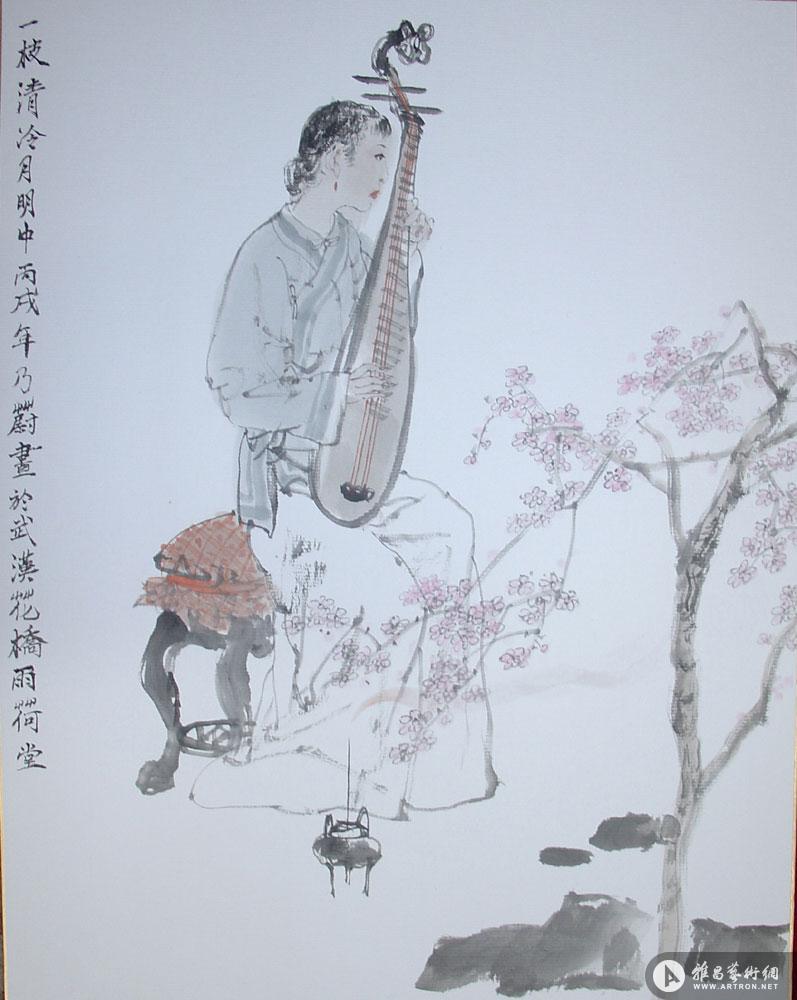 一枝清冷月明中丙戌年乃蔚畫於武漢花橋雨荷堂
雅昌藝術網
WWW.ARTRON.NET